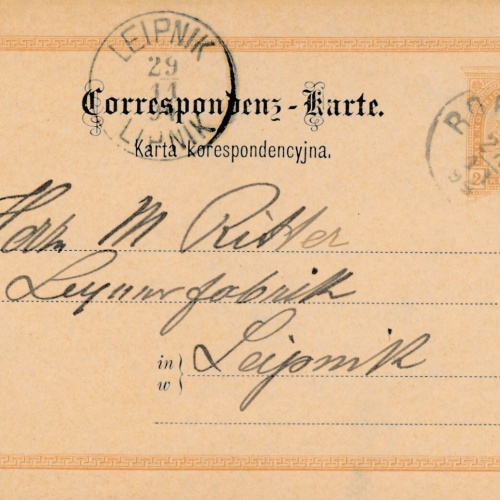 LEIPNIK
29
11
LIPNIK
Correspondenz-Karte.
Karta korespondencyjna.
RO
Herrn M Ritter
fabrik
in
w
Leipnik